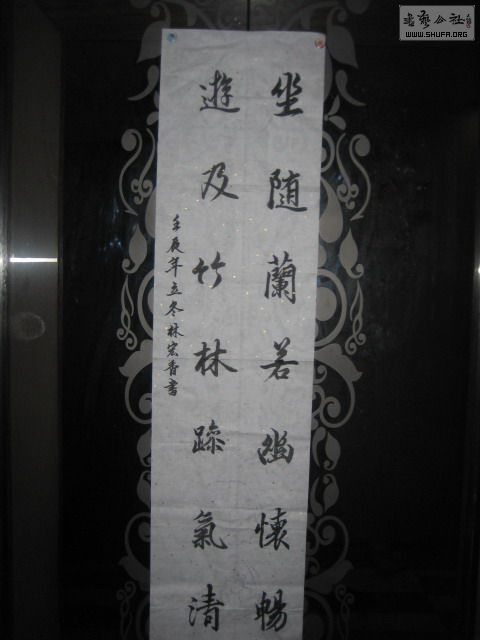 坐随蘭若幽懷暢
遊及竹林疏氣清
壬辰年立冬林宏香書
書藝公社
WWW.SHUFA.ORG